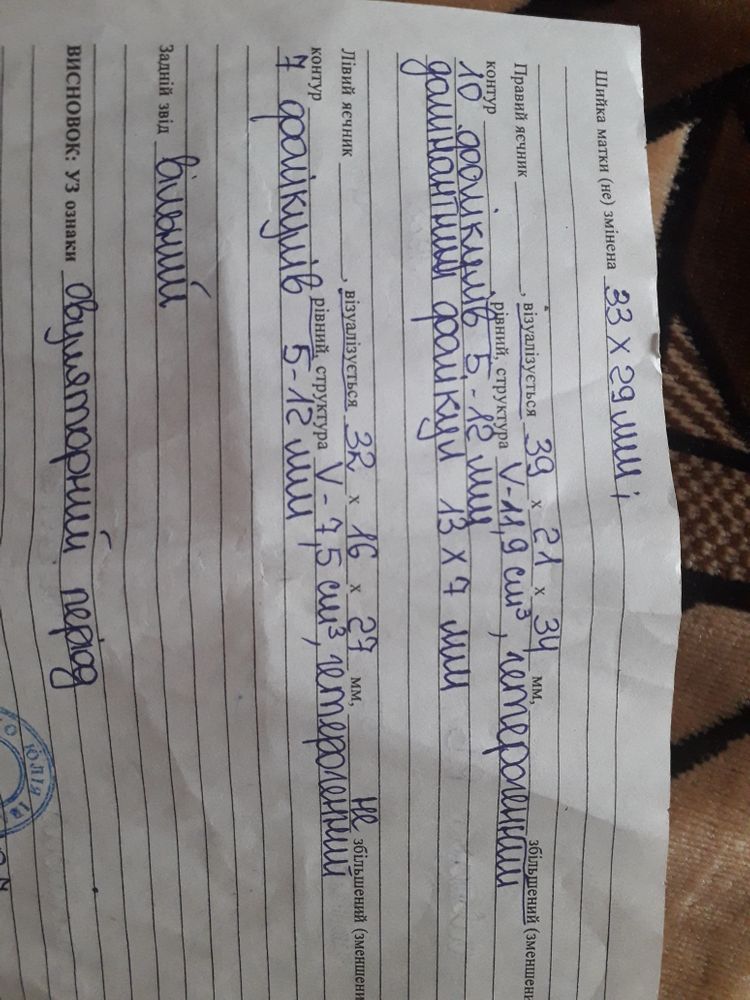 Шийка матки (не) змінена 33 х 29 мм;
Правий яєчник , візуалізується 39 х 21 х 34 мм, збільшений (зменшени
контур рівний, структура V-11,9 см³, гетерогенний
10 фолікулів 5-12 мм
домінантний фолікул 13 х 7 мм
Лівий яєчник , візуалізується 32 х 16 х 27 мм, не збільшений (зменшени
контур рівний, структура V-7,5 см³, гетерогенний
7 фолікулів 5-12 мм
Задній звід вільний
ВИСНОВОК: УЗ ознаки овуляторний період
ЮЛІЯ